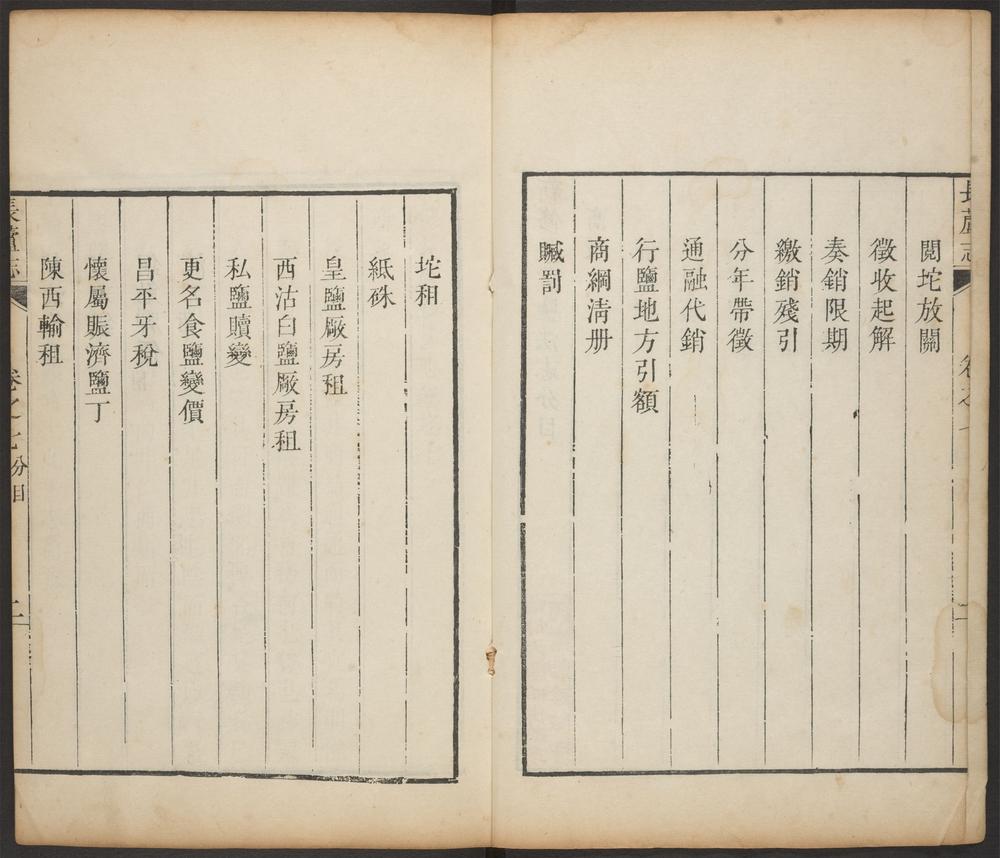 長蘆志 卷之七
閱坨放關
徵收起解
奏銷限期
繳銷殘引
分年帶徵
通融代銷
行鹽地方引額
商綱淸册
贓罰
坨租
紙硃
皇鹽廠房租
西沽白鹽廠房租
私鹽贖變
更名食鹽變價
昌平牙稅
懷屬賑濟鹽丁
陳西輸租
長蘆志 卷之七 分目 二